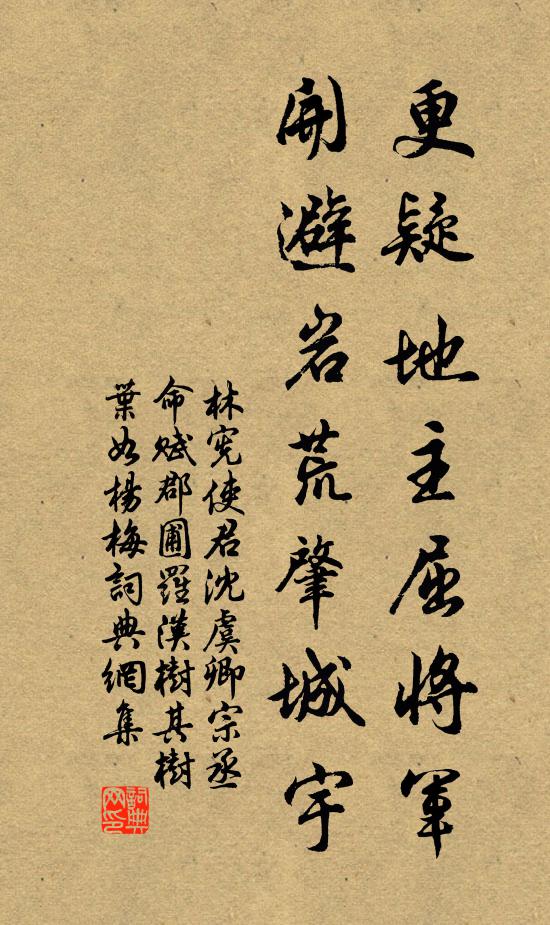 更疑地主屈將軍
開避岩荒肇城宇
林宪使君沈虞卿宗丞
命賦郡圃羅漢樹其樹
葉如楊梅詞典網集
詞典網印